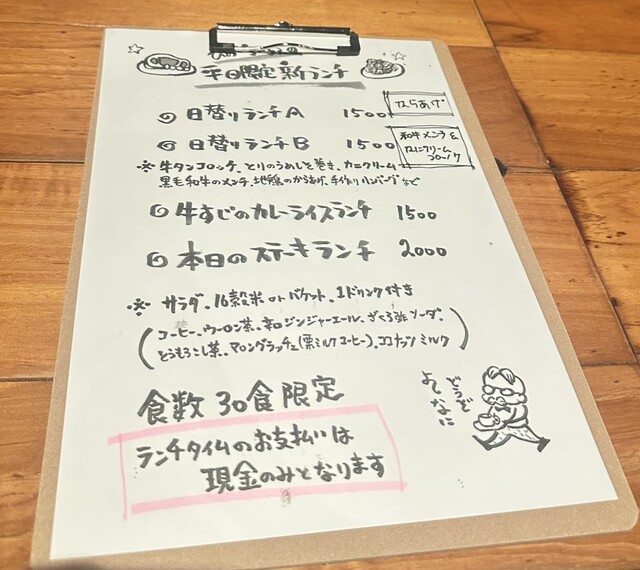 平日限定新ランチ
日替りランチA 1500 からあげ
日替りランチB 1500 和牛メンチ&
かにクリーム
コロッケ
※牛タンコロッケ、とりのうめしそ巻き、カニクリーム
黒毛和牛のメンチ、地鶏のからあげ、手作りハンバーグなど
牛すじのカレーライスランチ 1500
本日のステーキランチ 2000
※サラダ、16穀米orバケット、1ドリンク付き
(コーヒー、ウーロン茶、辛口ジンジャーエール、ざくろ酢ソーダ、
とうもろこし茶、マロングラッチェ(栗ミルクコーヒー)、ココナッツミルク)
食数30食限定
どうぞ
よしなに
ランチタイムのお支払いは
現金のみとなります